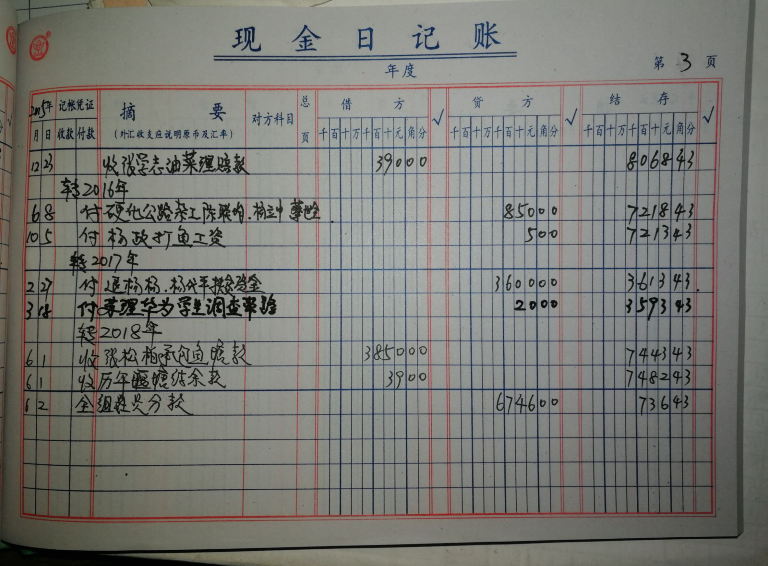 现金日记账
年度
第 3 页
2015年 记帐凭证 摘要 对方科目 总页 借方 √ 贷方 √ 结存 √
月 日 收款 付款 (外汇收支应说明原币及汇率) 千百十万千百十元角分 千百十万千百十元角分 千百十万千百十元角分
12 23 收张学志油菜理赔款 39000 806843
转2016年
6 8 付硬化公路杂工陈联 85000 721843
10 5 付杨政打鱼工资 500 721343
转2017年
2 27 付退杨杨、杨 金 360000 361343
3 18 付 理华为学生调查 2000 359343
转2018年
6 1 收张松柏承包鱼塘款 385000 744343
6 1 收历年 塘结余款 3900 748243
6 2 全组 员分款 674600 73643